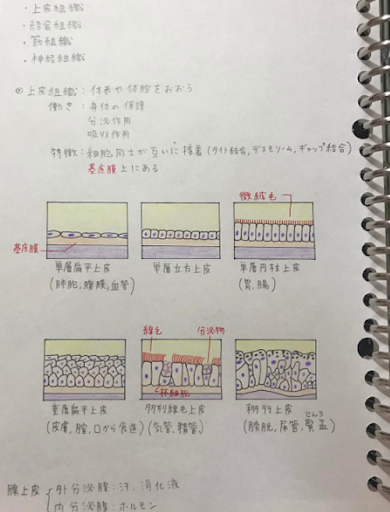 ・上皮組織
・結合組織
・筋組織
・神経組織
◎上皮組織：体表や体腔をおおう
働き：身体の保護
分泌作用
吸収作用
特徴：細胞同士が互いに接着(タイト結合, デスモソーム, ギャップ結合)
基底膜上にある
微絨毛
基底膜
単層扁平上皮 単層立方上皮 単層円柱上皮
(肺胞, 腹膜, 血管) (胃, 腸)
線毛 分泌物
杯細胞
重層扁平上皮 多列線毛上皮 移行上皮
(皮膚, 膣, 口から食道) (気管, 精管) (膀胱, 尿管, 腎盂)
じんう
腺上皮 外分泌腺：汗, 消化液
内分泌腺：ホルモン